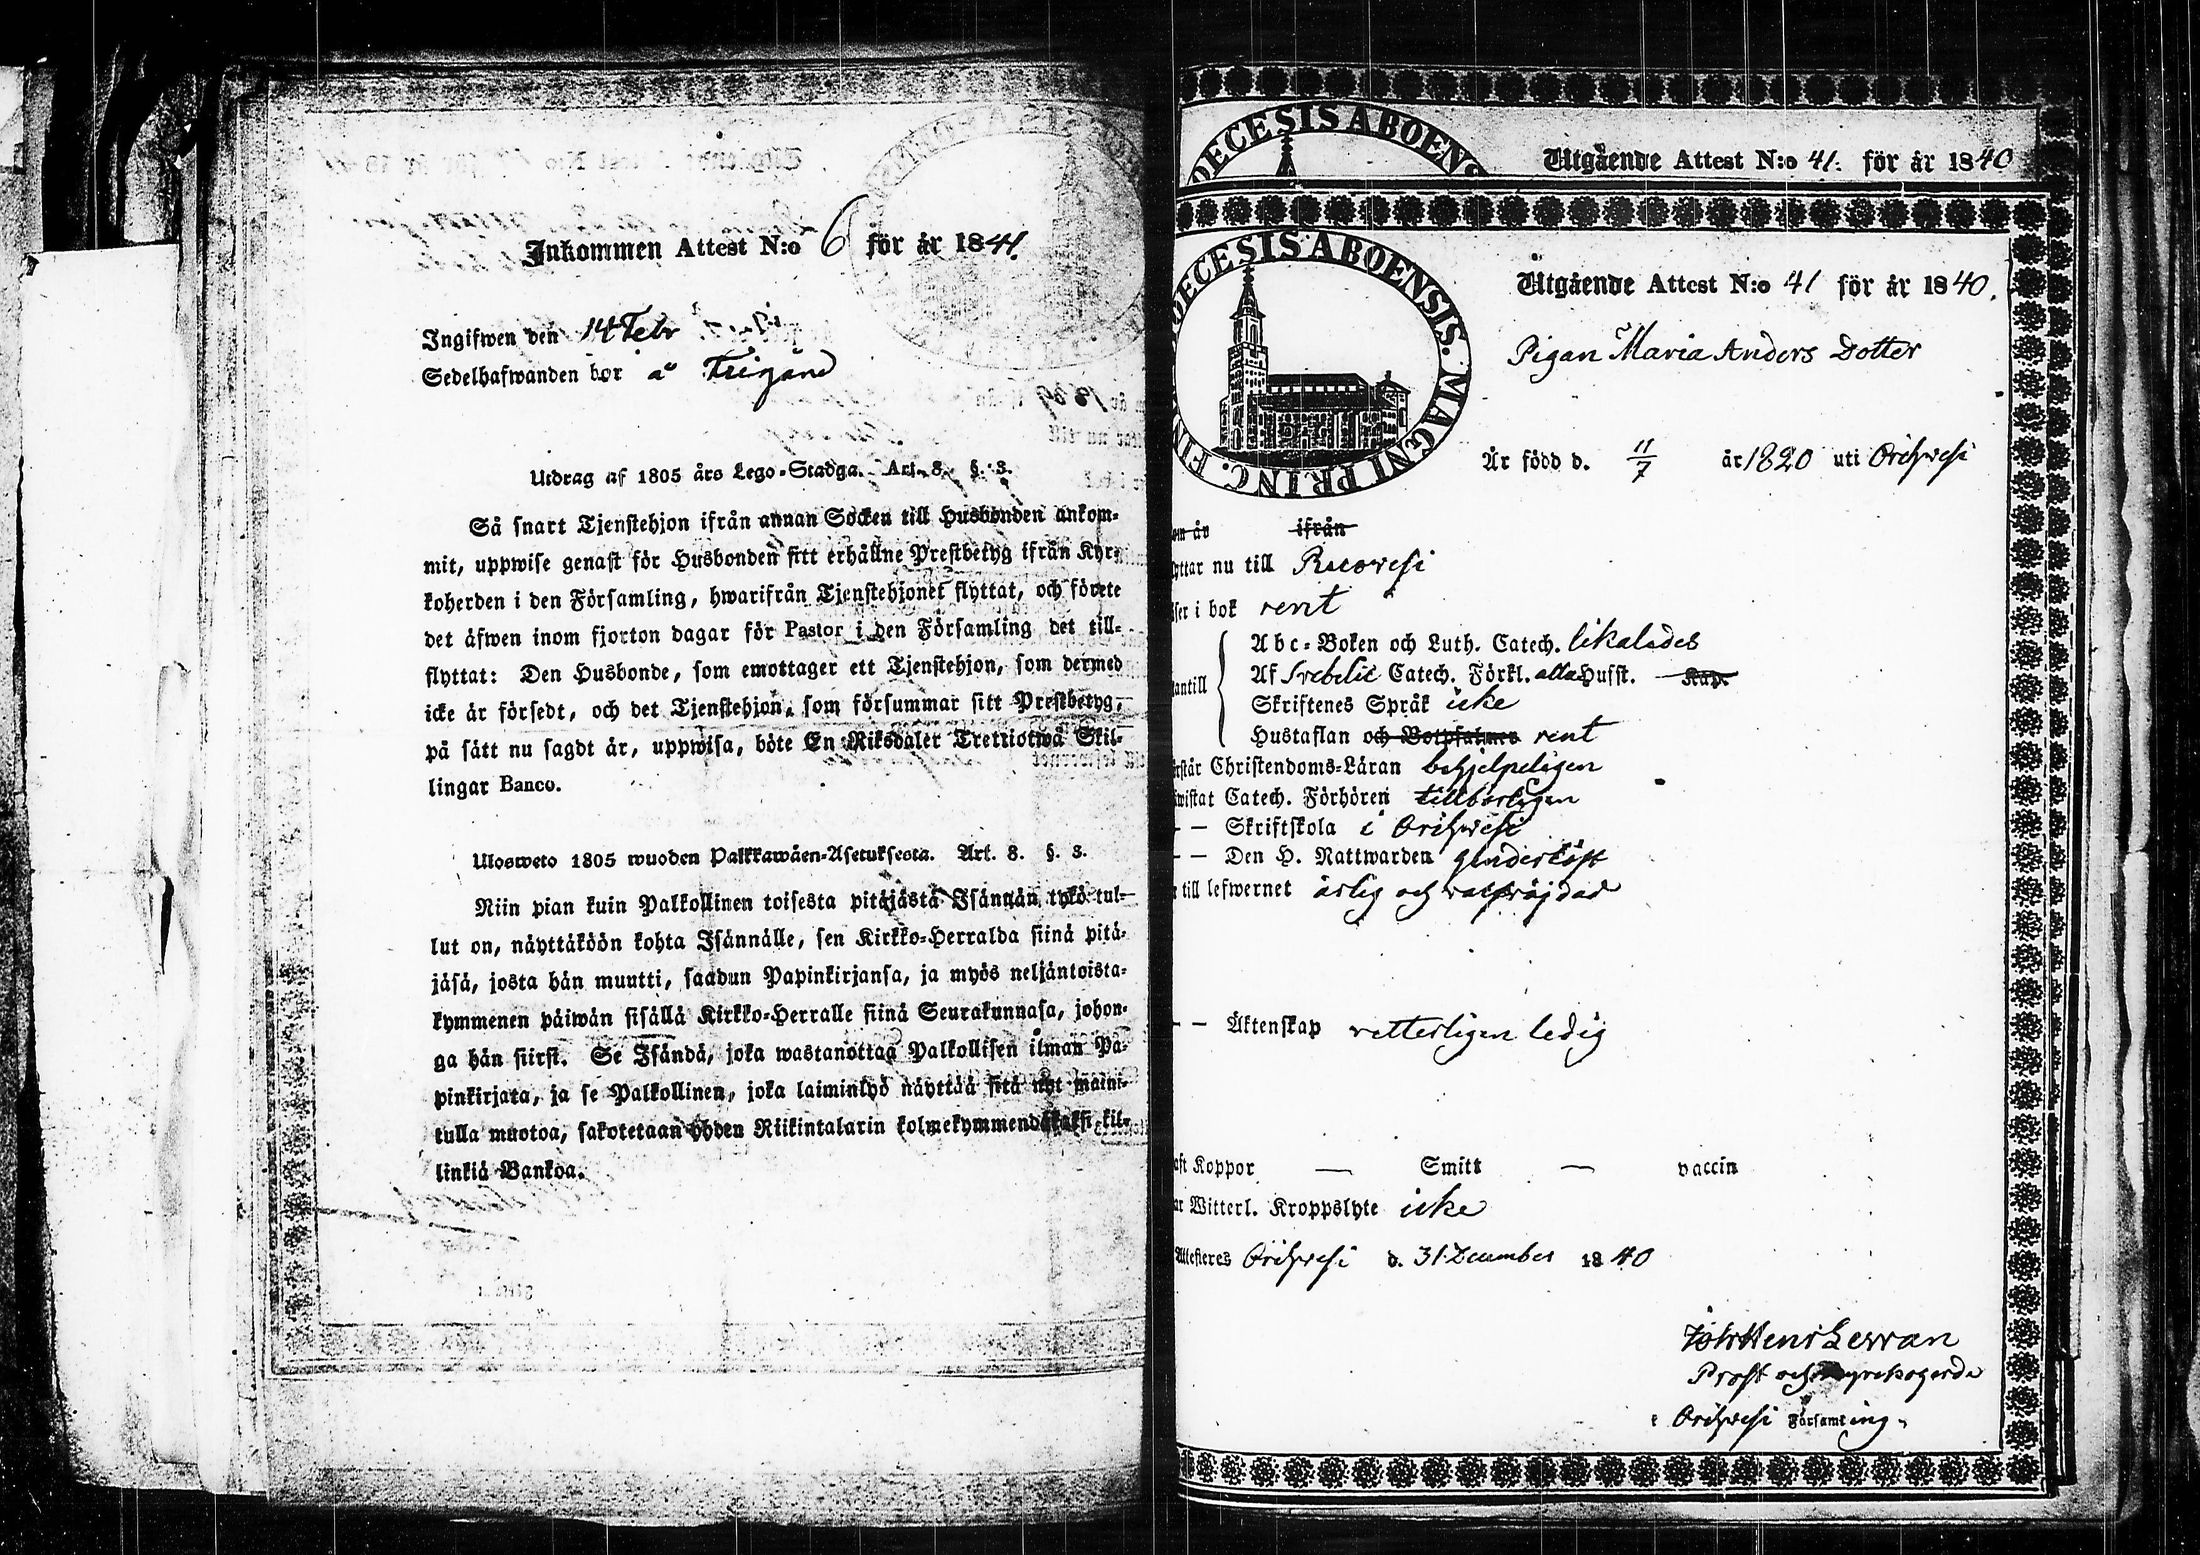 Inkommen Attest N:o 6 för år 1841.
Ingifwen den 14 Febr
Sedelhafwanden bor å
Utdrag af 1805 års Lego-Stadga. Art. 8. §. 3.
Så snart Tjenstehjon ifrån annan Socken till Husbonden ankom-
mit, uppwise genast för Husbonden sitt erhållne Prestbetyg ifrån Kyr-
koherden i den Församling, hwarifrån Tjenstehjonet flyttat, och förete
det äfwen inom fjorton dagar för Pastor i den Församling det till-
flyttat: Den Husbonde, som emottager ett Tjenstehjon, som dermed
icke är försedt, och det Tjenstehjon, som försummar sitt Prestbetyg,
på sätt nu sagdt är, uppwisa, böte En Riksdaler Trettiotwå Skil-
lingar Banco.
Ulosweto 1805 wuoden Palkkawäen-Asetuksesta. Art. 8. §. 3.
Niin pian kuin Palkollinen toisesta pitäjästä Isännän tykö tul-
lut on, näyttäköön kohta Isännälle, sen Kirkko-Herralda siinä pitä-
jäsä, josta hän muutti, saadun Papinkirjansa, ja myös neljäntoista-
kymmenen päiwän sisällä Kirkko-Herralle siinä Seurakunnasa, johon-
ga hän siirst. Se Isändä, joka wastanottaa Palkollisen ilman Pa-
pinkirjata, ja se Palkollinen, joka laiminlyö näyttää sitä nyt maini-
tulla muotoa, sakotetaan yhden Riikintalarin kolmekymmendäkaksi kil-
linkiä Bankoa.
DECESIS ABOENS
Utgående Attest N:o 41. för år 1840
DECESIS ABOENSIS. MAGNI PRINC. FIN
Utgående Attest N:o 41 för år 1840.
Pigan Maria Anders Dotter
Är född d. 11/7 år 1820 uti Orihvesi
om år ifrån
yttar nu till Ruovesi
ser i bok rent
antill
Abc-Boken och Luth. Catech. likaledes
Af Svebelii Catech. Förkl. alla Hufst. Kap.
Skriftenes Språk icke
Hustaflan och Botpsalmer rent
rstår Christendoms-Läran behjelpeligen
wistat Catech. Förhören tillbörligen
– – Skriftskola i Orihvesi
– – Den H. Nattwarden
till lefwernet ärlig och välfräjdad
– – Äktenskap vetterligen ledig
aft Koppor — Smitt — vaccin
ar Witterl. Kroppslyte icke
Attesteres Orihvesi d. 31 December 1840
Prost och Kyrckogerde
i Orihvesi Församling.